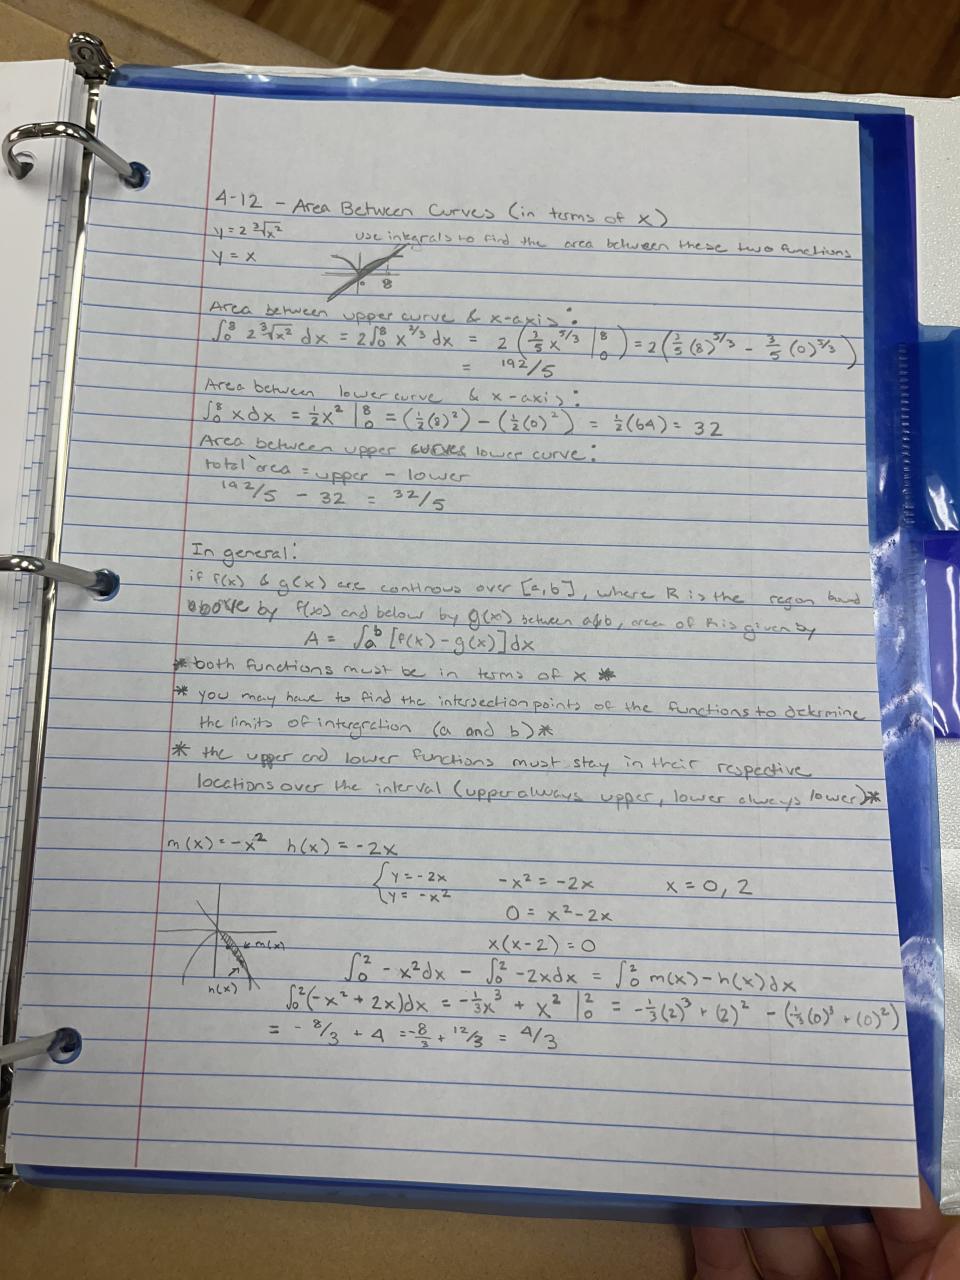 4-12 - Area Between Curves (in terms of x)
y = 2 ∛x² use integrals to find the area between these two functions
y = x
8
Area between upper curve & x-axis:
∫₀⁸ 2 ∛x² dx = 2∫₀⁸ x^2/3 dx = 2 (3/5 x^5/3 |₀⁸) = 2(3/5 (8)^5/3 - 3/5 (0)^5/3)
= 192/5
Area between lower curve & x-axis:
∫₀⁸ x dx = ½x² |₀⁸ = (½(8)²) - (½(0)²) = ½(64) = 32
Area between upper curves lower curve:
total area = upper - lower
192/5 - 32 = 32/5
In general:
if f(x) & g(x) are continous over [a,b], where R is the regon bound
above by f(x) and below by g(x) between a&b, area of R is given by
A = ∫ₐᵇ [f(x) - g(x)] dx
* both functions must be in terms of x *
* you may have to find the intersection points of the functions to determine
the limits of intergration (a and b) *
* the upper and lower functions must stay in their respective
locations over the interval (upper always upper, lower always lower) *
m(x) = -x² h(x) = -2x
{y = -2x -x² = -2x x = 0, 2
{y = -x² 0 = x² - 2x
m(x) x(x-2) = 0
h(x) ∫₀² - x² dx - ∫₀² -2x dx = ∫₀² m(x) - h(x) dx
∫₀² (-x² + 2x) dx = -⅓x³ + x² |₀² = -⅓(2)³ + (2)² - (⅓(0)³ + (0)²)
= - 8/3 + 4 = -8/3 + 12/3 = 4/3